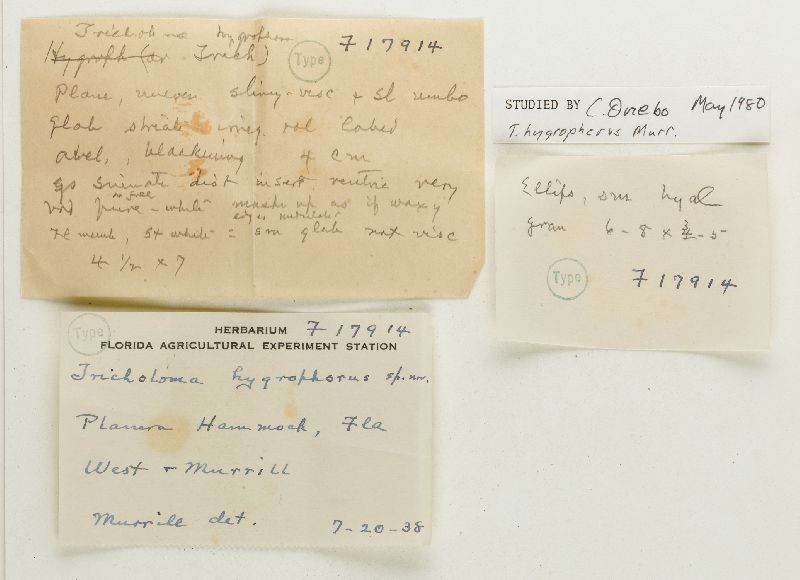 Tricholoma hygrophorus
Hygroph (or Trich) Type F17914
Plane, uneven slimy-visc + sl umbo
glab striate irreg lobed
avel, blackening 4 cm
sinuate dist insert ventric very
or free
pure-white mashes up as if waxy
edges undulate
memb, st white = sm glab not visc
4 1/2 x 7
STUDIED BY C. Ovrebo May 1980
T. hygrophorus Murr.
Ellips, sm hyal
gran 6-8 x -5
Type F17914
Type HERBARIUM F17914
FLORIDA AGRICULTURAL EXPERIMENT STATION
Tricholoma hygrophorus sp. nov.
Planera Hammock, Fla
West + Murrill
Murrill det. 7-20-38